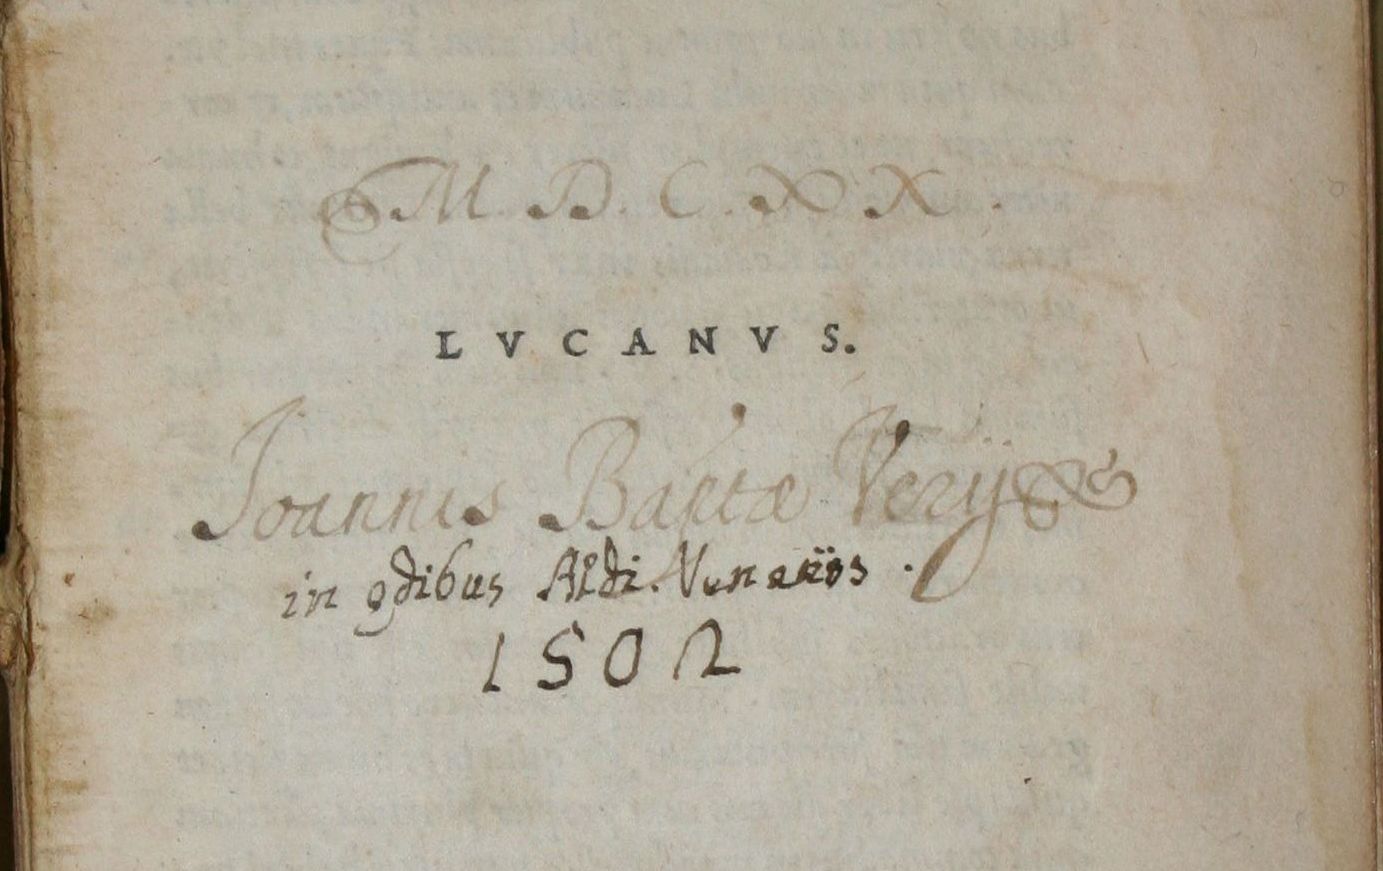 M. D. C. X X.
LVCANVS.
Joannis Baptæ Verij
in ędibus Aldi. Venetiis.
1502